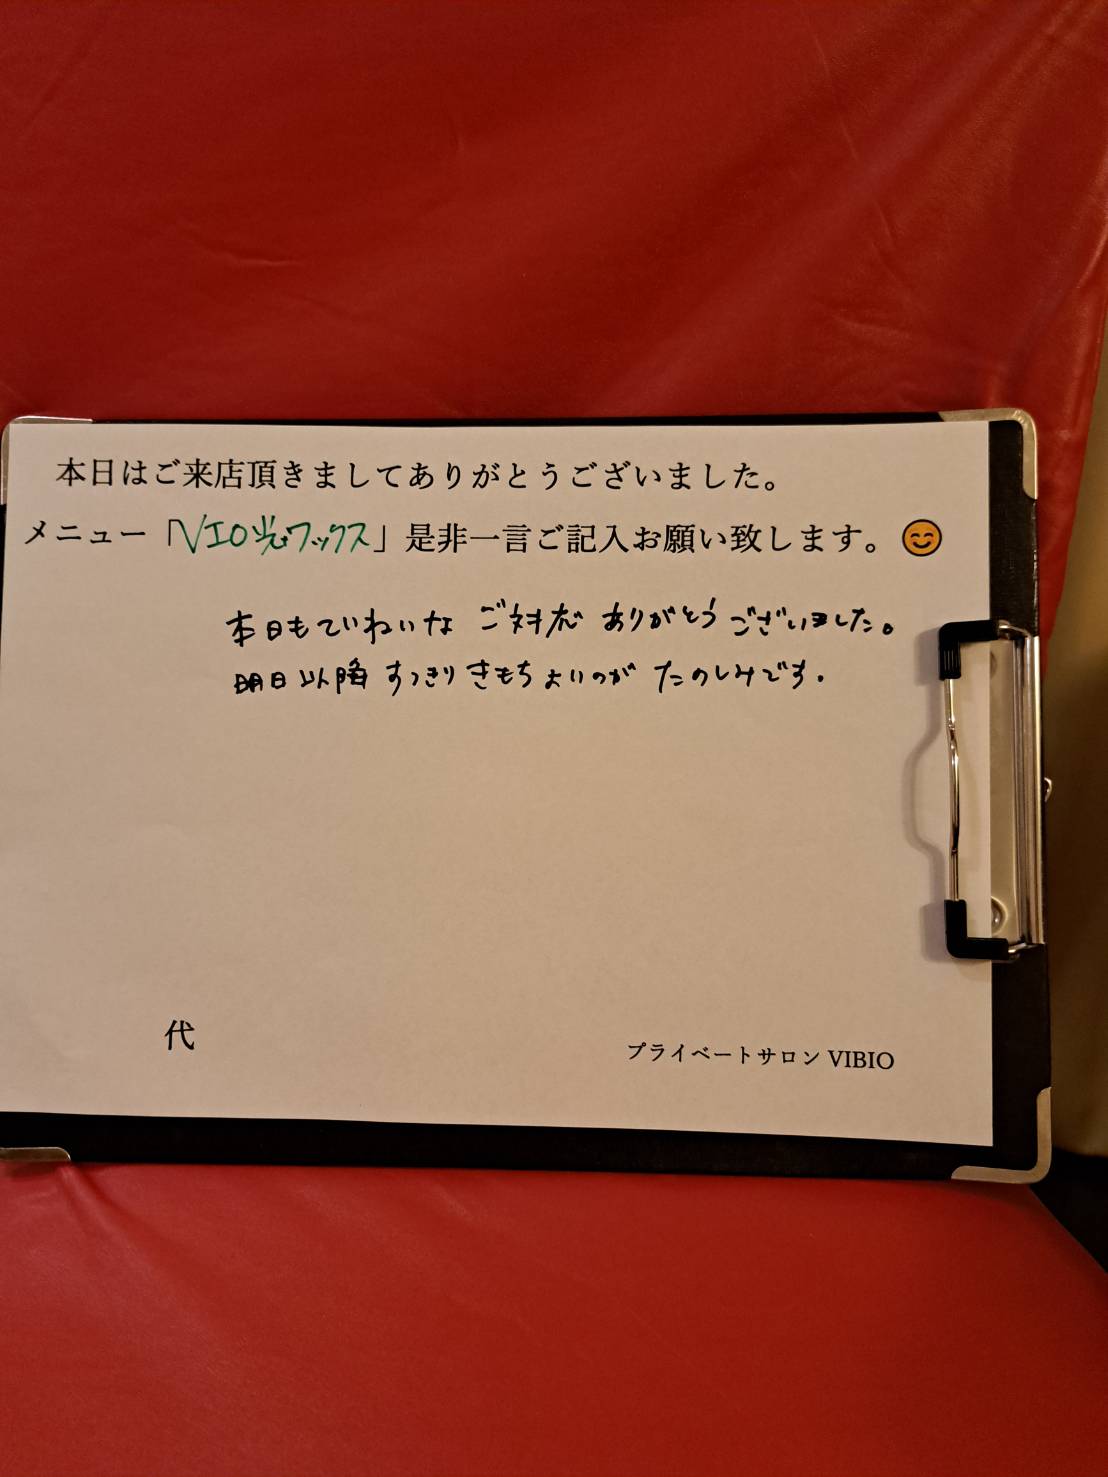 本日はご来店頂きましてありがとうございました。
メニュー「VIO光+ワックス」是非一言ご記入お願い致します。😊
本日もていねいな ご対応 ありがとう ございました。
明日以降 すっきり きもちよいのが たのしみです.
代
プライベートサロン VIBIO